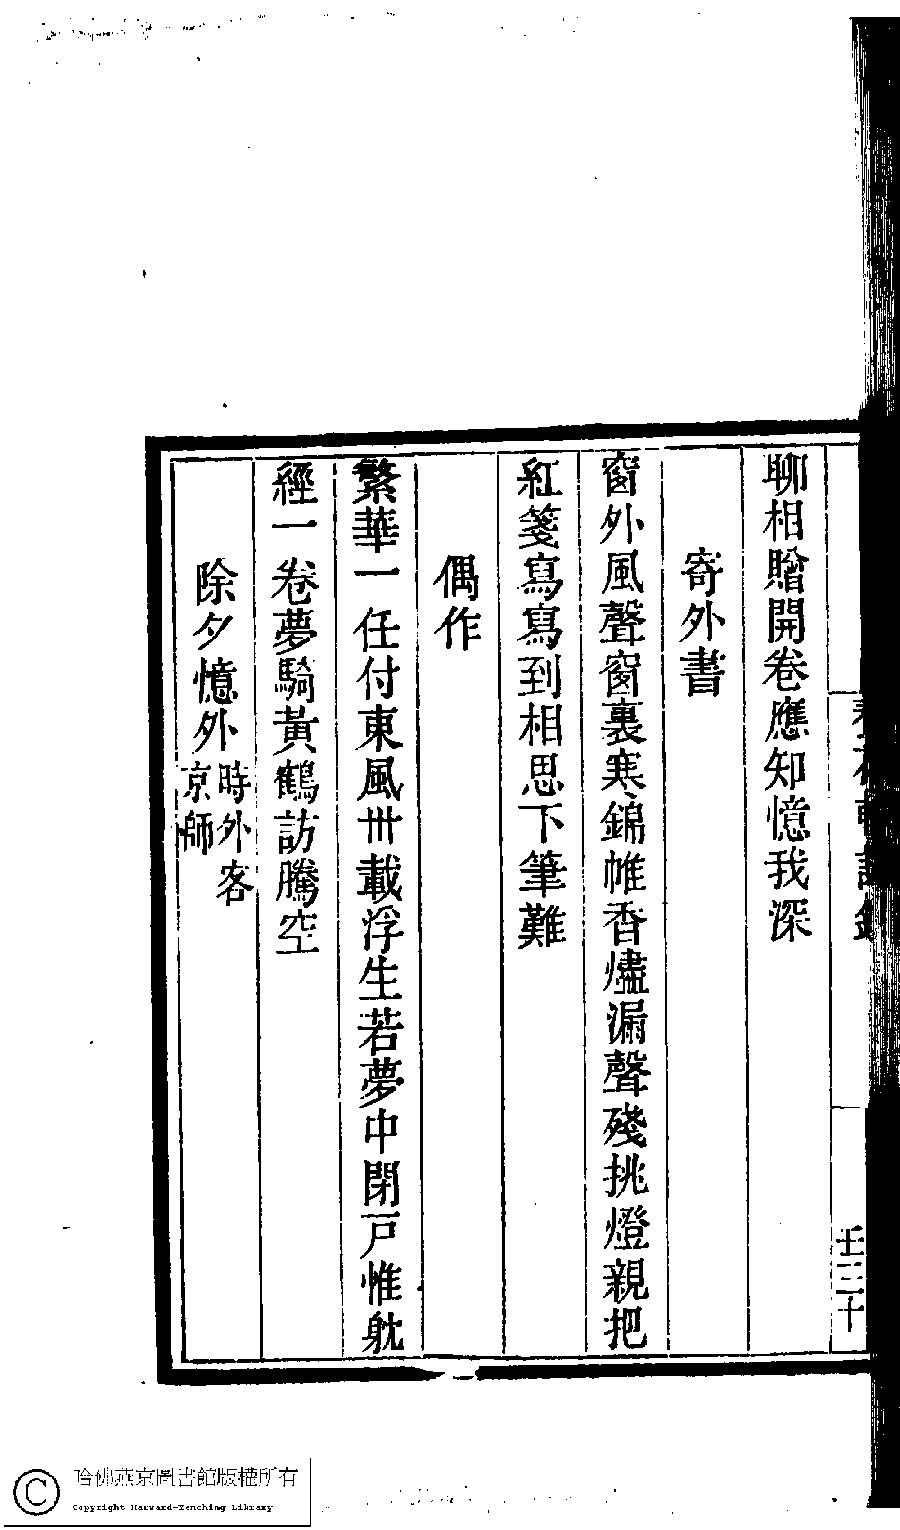 聊相贈開卷應知憶我深
寄外書
窗外風聲窗裏寒錦帷香燼漏聲殘挑燈親把
紅箋寫寫到相思下筆難
偶作
繁華一任付東風卅載浮生若夢中閉戸惟躭
經一卷夢騎黃鶴訪騰空
除夕憶外時外客
京師
壬三十
哈佛燕京圖書館版權所有
Copyright Harvard-Yenching Library